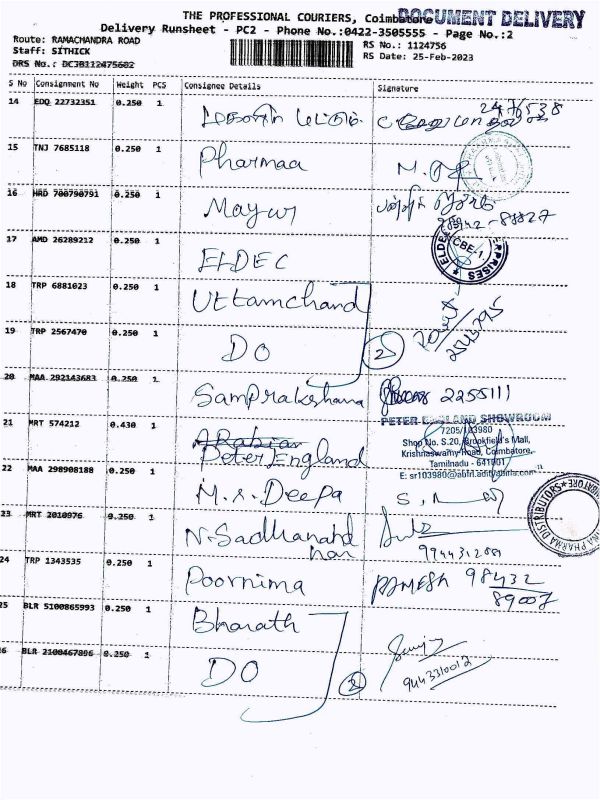 THE PROFESSIONAL COURIERS, Coimbatore
DOCUMENT DELIVERY
Delivery Runsheet - PC2 - Phone No.:0422-3505555 - Page No.:2
Route: RAMACHANDRA ROAD
RS No.: 1124756
Staff: SITHICK
RS Date: 25-Feb-2023
DRS No.: DCJB112475602
S No Consignment No Weight PCS Consignee Details Signature
14 EDQ 22732351 0.250 1
2476538
15 TNJ 7685118 0.250 1 Pharmaa
16 HRD 700790791 0.250 1 Mayur
17 AMD 26289212 0.250 1 ELDEC
CBE-1
18 TRP 6881023 0.250 1 Uttamchand
19 TRP 2567470 0.250 1 DO 2
2543795
20 MAA 292143683 0.250 1 Samprakshana 2255111
PETER ENGLAND SHOWROOM
7205/103980
21 MRT 574212 0.430 1 Arabian
Peter England
Shop No. S.20, Brookfield's Mall,
Krishnaswamy Road, Coimbatore,
Tamilnadu - 641001
E: sr103980@abfrl.adityabirla.com
22 MAA 298908188 0.250 1 M.S. Deepa
23 MRT 2010976 0.250 1 N. Sadhanand
nan
24 TRP 1343535 0.250 1 Poornima RAMESH 98432
89007
25 BLR 5100865993 0.250 1 Bharath
26 BLR 2100467896 0.250 1 DO 2
9443310012